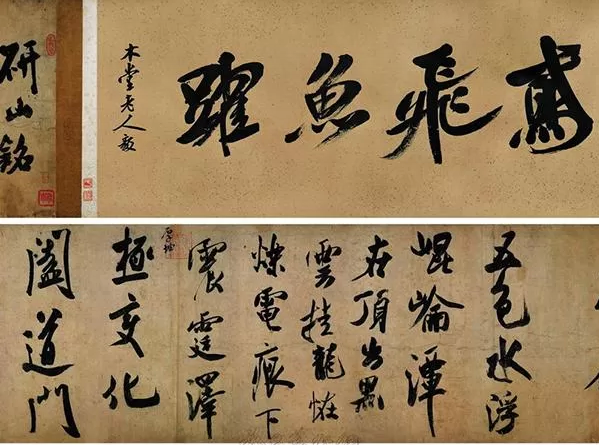 鳶飛魚躍
木堂老人毅
研山銘
五色水浮
崐崘潭
在頂出黑
雲挂龍恠
爍電痕下
震霆澤
極變化
闔道門